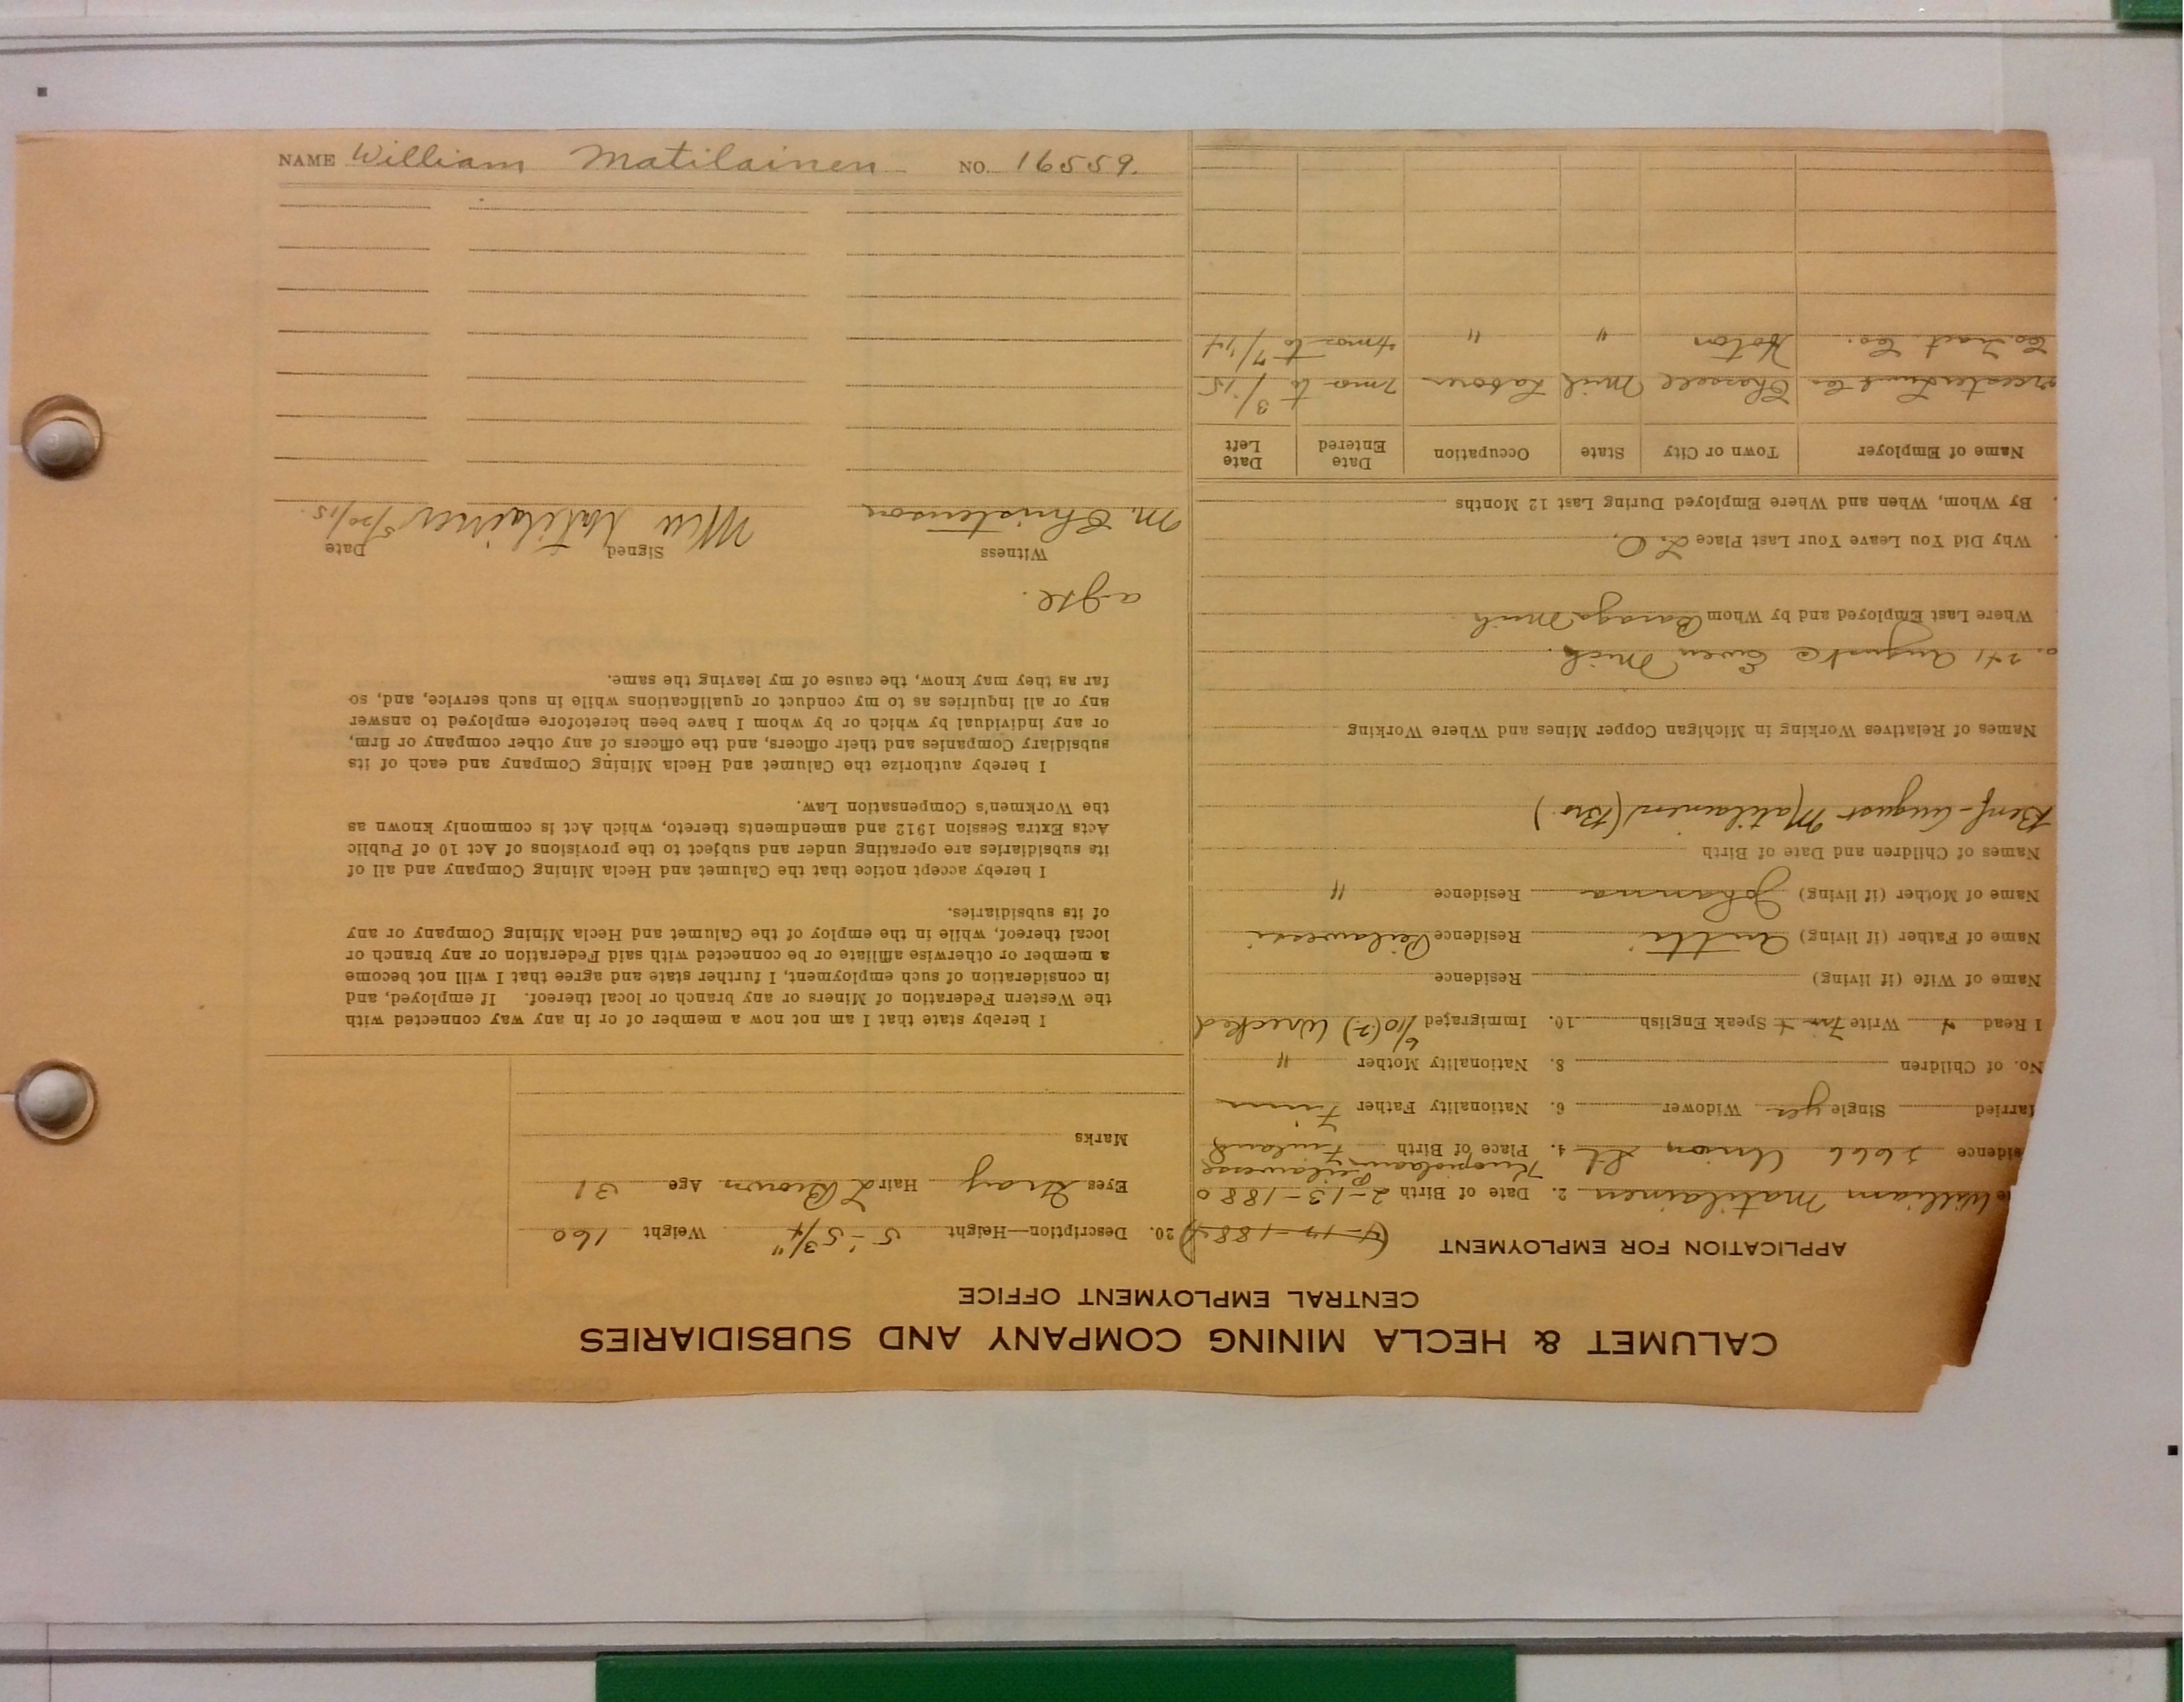 CALUMET & HECLA MINING COMPANY AND SUBSIDIARIES
CENTRAL EMPLOYMENT OFFICE
APPLICATION FOR EMPLOYMENT
William Matilainen 2. Date of Birth 2-13-1880
idence 2666 Union St 4. Place of Birth Finland
arried Single yes Widower 6. Nationality Father Finn
No. of Children 8. Nationality Mother "
I Read Write Speak English 10. Immigrated 6/10(?) Wrecked
Name of Wife (if living) Residence
Name of Father (if living) Antti Residence
Name of Mother (if living) Johanna Residence "
Names of Children and Date of Birth
Benf-August Matilainen (Bro.)
Names of Relatives Working in Michigan Copper Mines and Where Working
Ewen Mich.
Where Last Employed and by Whom Baraga Mich
Why Did You Leave Your Last Place L.O.
By Whom, When and Where Employed During Last 12 Months
Name of Employer Town or City State Occupation Date Entered Date Left
Chassell Mich Labores 7mos to 3/15
Co. " " 4mos to 7/14
20. Description—Height 5'-5 3/4" Weight 160
Eyes Gray Hair L Brown Age 31
Marks
I hereby state that I am not now a member of or in any way connected with
the Western Federation of Miners or any branch or local thereof. If employed, and
in consideration of such employment, I further state and agree that I will not become
a member or otherwise affiliate or be connected with said Federation or any branch or
local thereof, while in the employ of the Calumet and Hecla Mining Company or any
of its subsidiaries.
I hereby accept notice that the Calumet and Hecla Mining Company and all of
its subsidiaries are operating under and subject to the provisions of Act 10 of Public
Acts Extra Session 1912 and amendments thereto, which Act is commonly known as
the Workmen's Compensation Law.
I hereby authorize the Calumet and Hecla Mining Company and each of its
subsidiary Companies and their officers, and the officers of any other company or firm,
or any individual by which or by whom I have been heretofore employed to answer
any or all inquiries as to my conduct or qualifications while in such service, and, so
far as they may know, the cause of my leaving the same.
Witness Signed Date
M. Christenson Matilainen 5/20/15.
NAME William Matilainen NO. 16559.